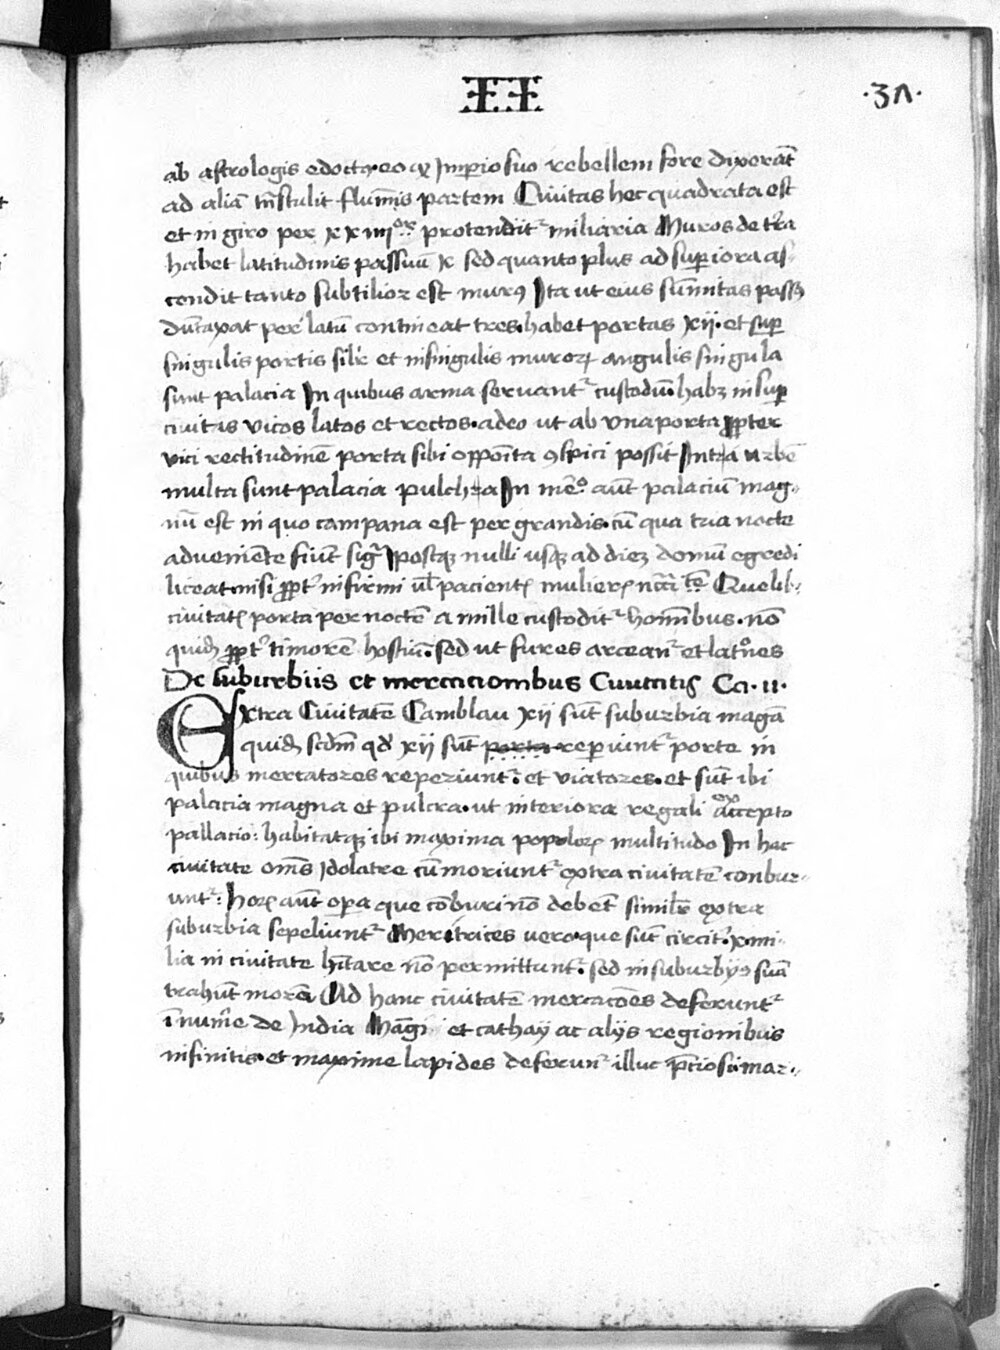 II
·37·
ab astrologis edoctꝰ eo qꝫ Imperio suo rebellem fore dixerāt
ad aliā tn̄stulit flumīs partem Ciuitas hec quadrata est
et in giro per xxiiii°ʳ protenditᷣ miliaria Muros de tr̄a
habet latitudinis passuū x sed quanto plus ad superiora as-
cendit tanto subtilior est murꝰ Ita ut eius sūmitas passꝰ
dūtaxat per latū contineat tres. habet portas xii· et suꝑ
singulis portis silr̄ et in singulis muroꝝ angulis singula
sunt palacia In quibus arma seruantᷣ custodū. habꝫ insuꝑ
ciuitas vicos latos et rectos· adeo ut ab una porta ꝓpter
vici rectitudinē porta sibi oppōita ꝯspici possit Intra urbē
multa sunt palacia pulchra In mē° aūt palaciū mag-
nū est in quo campana est per grandis· cū qua tria nocte
adveniēte fiūt sigᷓ postqꝫ nulli usqꝫ ad diēꝫ domū egredi
liceat nisi ꝓptᷣ infirmi ul̄ pacientꝭ mulierꝭ Quelib-
ciuitatꝭ porta per noctē a mille custoditᷣ homībus· nō
quidꝫ ꝓptᷣ timorē hostiū· sed ut fures arceanᷣ et latrōes
De suburbiis et mercacionibus Ciuitatis Ca· ii·
Extra Ciuitatē Camblau xii sūt suburbia magā
quidꝫ scdm̄ qd̄ xii sūt porta reperiuntᷣ porte in
quibus mercatores reperiuntᷣ· et viatores· et sūt ibi
palacia magna et pulcra· ut interiora regali exͦ accepto
pallacio: habitatqꝫ ibi maxima populoꝝ multitudo In hac
ciuitate om̄s Idolatre cū moriuntᷣ extra ciuitatē conbur-
untᷣ: hoꝝ aūt oꝑa que cōburi nō debēt similr̄ extra
suburbia sepeliuntᷣ Meretrices vero que sūt circitᷣ x· mi-
lia in ciuitate hītare nō permittuntᷣ· sed in suburbijs suā
trahūt morā Ad hanc ciuitatē mercacōes deferuntᷣ
īnumᷣe de India Māgi et cathaÿ ac alijs regionibus
infinitis· et maxime lapides deferunᷣ illuc p̄ciosi mar-